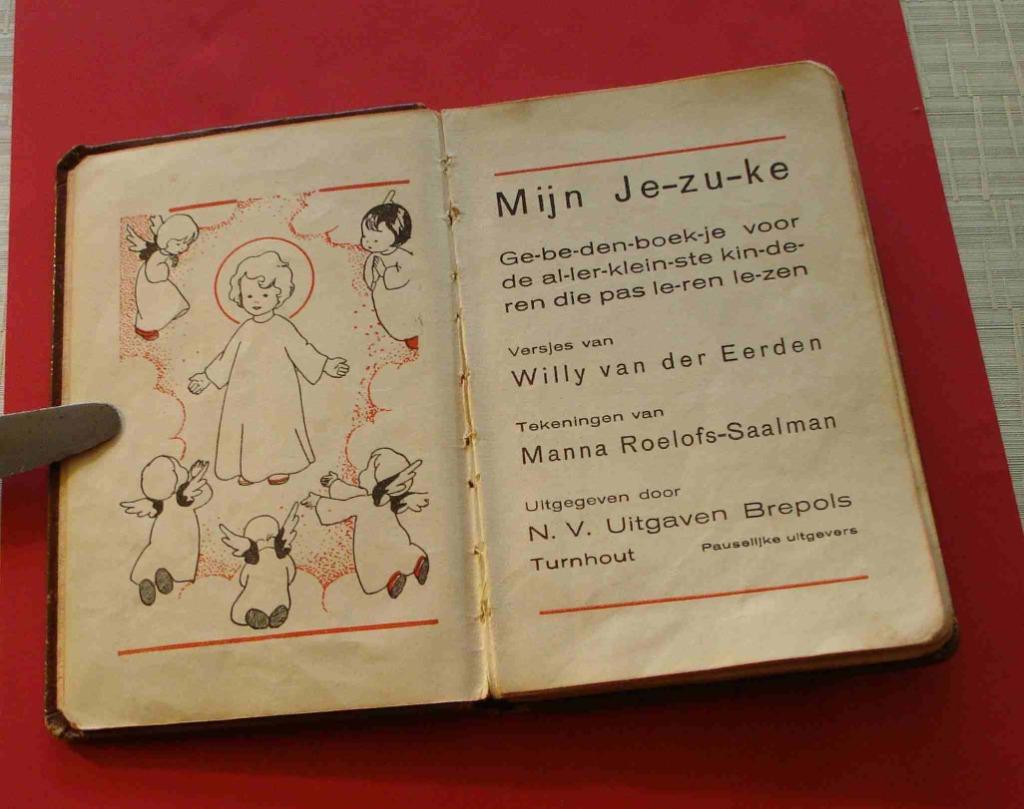 Mijn Je-zu-ke
Ge-be-den-boek-je voor
de al-ler-klein-ste kin-de-
ren die pas le-ren le-zen
Versjes van
Willy van der Eerden
Tekeningen van
Manna Roelofs-Saalman
Uitgegeven door
N. V. Uitgaven Brepols
Turnhout Pauselijke uitgevers